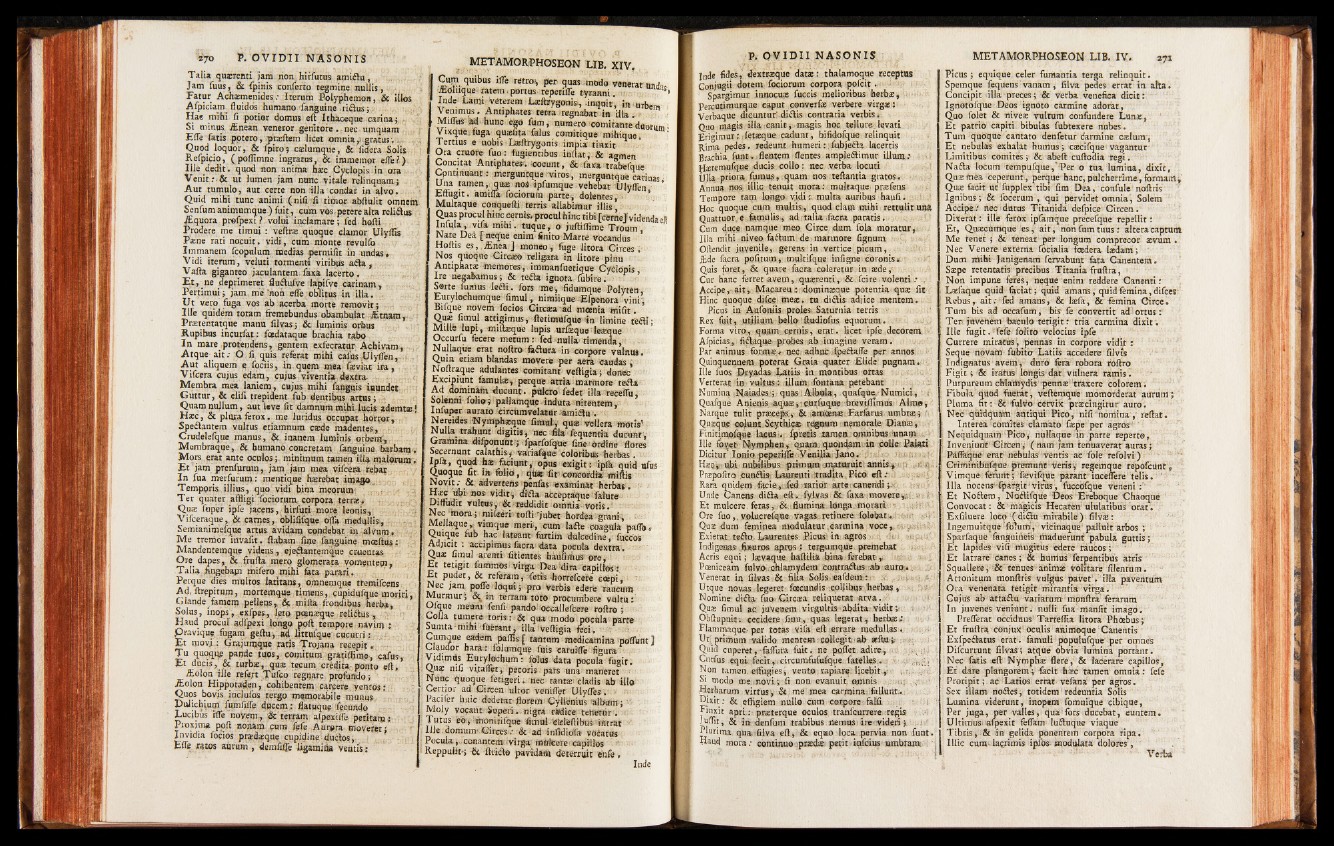 270 P. OVIDII NASONIS
Talia quærenti jam non hirſutus amictu,
Jam ſuus, & ſpinis conſerto tegmine nullis,
Fatur Achæmenides: Iterum Polyphemon, & illos
Aſpiciam fluidos humano ſanguine rictus;
Hac mihi ſi potior domus eſt Ithaceque carina;
Si minus Ænean veneror genitore. nec umquam
Eſſe ſatis potero, præſtem licet omnia, gratus.
Quod loquor, & ſpiro; cælumque, & ſidera Solis
Reſpicio, (poſſimne ingratus, & immemor eſſe?)
Ille dedit. quod non anima hæc Cyclopis in ora
Venit: & ut lumen jam nunc vitale relinquam;
Aut tumulo, aut certe non illa condar in alvo.
Quid mihi tunc animi (niſi ſi timor abſtulit omnem
Senſum animumque) fuit, cum vos petere alta relictus
Æquora proſpexi? volui inclamare; ſed hoſti
Prodere me timui: veſtræ quoque clamor Ulyſſis
Pæne rati nocuit. vidi, cum monte revulſo
Immanem ſcopulum medias permiſit in undas.
Vidi iterum, veluti tormenti viribus acta,
Vaſta giganteo jaculantem ſaxa lacerto.
Et, ne deprimeret fluctuſve lapiſve carinam,
Pertimui; jam me non eſſe oblitus in illa.
Ut vero fuga vos ab acerba morte removit;
Ille quidem totam fremebundus obambulat Ætnam,
Prætentatque manu ſilvas; & luminis orbus
Rupibus incurſat: fœdataque brachia tabo
In mare protendens, gentem exſecratur Achivam,
Atque ait: O ſi quis referat mihi caſus Ulyſſen,
Aut aliquem e ſociis, in quem mea ſæviat ira,
Viſcera cujus edam, cujus viventia dextra
Membra mea laniem, cujus mihi ſanguis inundet
Guttur, & eliſi trepident ſub dentibus artus;
Quam nullum, aut leve ſit damnum mihi lucis ademtæ!
Hæc, & plura ferox. me luridus occupat horror,
Spectantem vultus etiamnum cæde madentes,
Crudeleſque manus, & inanem luminis orbem,
Membraque, & humano concretam ſanguine barbam.
Mors erat ante oculos; minimum tamen illa malorum.
Et jam prenſurum, jam jam mea viſcera rebar
In ſua merſurum: mentique hærebat imago
Temporis illius, quo vidi bina meorum
Ter quater affligi ſociorum corpora terræ,
Quæ ſuper ipſe jacens, hirſuti more leonis,
Viſceraque, & carnes, oblitiſque oſſa medullis,
Semianimeſque artus avidam condebat in alvum.
Me tremor invaſit. ſtabam ſine ſanguine mœſtus:
Mandentemque videns, ejectantemque cruentas
Ore dapes, & fruſta mero glomerata vomentem,
Talia fingebam miſero mihi fata parari.
Perque dies multos latitans, omnemque tremiſcens
Ad ſtrepitum, mortemque timens, cupiduſque moriri,
Glande famem pellens, & miſta frondibus herba,
Solus, inops, exſpes, leto pœnæque relictus,
Haud procul adſpexi longo poſt tempore navim:
Oravique fugam geſtu, ad littuſque cucurri:
Et movi: Grajumque ratis Trojana recepit.
Tu quoque pande tuos, comitum gratiſſime, caſus,
Et ducis, & turbæ, quæ tecum credita ponto eſt,
Æolon ille refert Tuſco regnare profundo;
Æolon Hippotaden, cohibentem carcere ventos:
Quos bovis incluſos tergo memorabile munus
Dulichium ſumſiſſe ducem: flatuque ſecundo
Lucibus iſſe novem, & terram aſpexiſſe petitam:
Proxima poſt nonam cum ſeſe Aurora moveret;
Invidia ſocios prædæque cupidine ductos,
Eſſe ratos aurum, demſiſſe ligamina ventis:
METAMORPHOSEON LIB. XIV.
Cum quibus iſſe retro, per quas modo venerat undas,
Æoliique ratem portus repetiſſe tyranni.
Inde Lami veterem Læſtrygonis, inquit, in urbem
Venimus. Antiphates terra regnabat in illa.
Miſſus ad hunc ego ſum, numero comitante duorum:
Vixque fuga quæſita ſalus comitique mihique.
Tertius e nobis Læſtrygonis impia tinxit
Ora cruore ſuo: fugientibus inſtat, & agmen
Concitat Antiphates. coeunt, & ſaxa trabeſque
Continuant: merguntque viros, merguntque carinas.
Una tamen, quæ nos ipſumque vehebat Ulyſſen,
Effugit. amiſſa ſociorum parte, dolentes,
Multaque conqueſti terris allabimur illis,
Quas procul hinc cernis. procul hinc tibi [cerne] videnda eſt
Inſula, viſa mihi. tuque, o juſtiſſime Troum,
Nate Dea [neque enim finito Marte vocandus
Hoſtis es, Ænea] moneo, fuge litora Circes.
Nos quoque Circæo religata in litore pinu
Antiphatæ memores, immanſuetique Cyclopis,
Ire negabamus; & tecta ignota ſubire.
Sorte ſumus lecti. fors me, fidumque Polyten,
Eurylochumque ſimul, nimiique Elpenora vini;
Biſque novem ſocios Circæa ad mœnia miſit.
Quæ ſimul attigimus, ſtetimuſque in limine tecti;
Mille lupi, miſtæque lupis urſæque leæque
Occurſu fecere metum: ſed nulla timenda,
Nullaque erat noſtro factura in corpore vulnus.
Quin etiam blandas movere per aera caudas,
Noſtraque adulantes comitant veſtigia; donec
Excipiunt famulæ, perque atria marmore tecta
Ad dominam ducunt. pulcro ſedet illa receſſu,
Solenni ſolio; pallamque induta nitentem,
Inſuper aurato circumvelatur amictu.
Nereides Nymphæque ſimul, quæ vellera motis
Nulla trahunt digitis, nec fila ſequentia ducunt,
Gramina diſponunt; ſparſoſque ſine ordine flores
Secernunt calathis, variaſque coloribus herbas.
Ipſa, quod hæ faciunt, opus exigit: ipſa quid uſus
Quoque ſit in folio, quæ ſit concordia miſtis
Novit: & advertens penſas examinat herbas.
Hæc ubi nos vidit, dicta acceptaque ſalute
Diffudit vultus, & reddidit omnia votis.
Nec mora; miſceri toſti jubet hordea grani,
Mellaque, vimque meri, cum lacte coagula paſſo,
Quique ſub hac lateant furtim dulcedine, ſuccos
Adjicit: accipimus ſacra data pocula dextra.
Quæ ſimul arenti ſitientes hauſimus ore,
Et tetigit ſummos virga Dea dira capillos:
Et pudet, & referam, ſetis horreſcere cœpi,
Nec jam poſſe loqui; pro verbis edere raucum
Murmur; & in terram toto procumbere vultu:
Oſque meum ſenſi pando occalleſcere roſtro;
Colla tumere toris: & qua modo pocula parte
Sumta mihi fuerant, illa veſtigia feci.
Cumque eadem paſſis [tantum medicamina poſſunt]
Claudor hara: ſolumque ſuis caruiſſe figura
Vidimus Eurylochum: ſolus data pocula fugit.
Quæ niſi vitaſſet, pecoris pars una maneret
Nunc quoque ſetigeri. nec tantæ cladis ab illo
Certior ad Circen ultor veniſſet Ulyſſes.
Pacifer huic dederat florem Cyllenius album;
Moly vocant Superi. nigra radice tenetur.
Tutus eo, monitiſque ſimul cæleſtibus intrat
Ille domum Circes: & ad inſidioſa vocatus
Pocula, conantem virga mulcere capillos
Reppulit; & ſtricto pavidam deterruit enſe,
Inde
P. OVIDII NASONIS
Inde fides, dextræque datæ: thalamoque receptus
Conjugii dotem ſociorum corpora poſcit.
Spargimur innocuæ ſuccis melioribus herbæ,
Percutimurque caput converſæ verbere virgæ:
Verbaque dicuntur dictis contraria verbis.
Quo magis illa canit, magis hoc tellure levati
Erigimur: ſetæque cadunt, bifidoſque relinquit
Rima pedes. redeunt humeri: ſubjecta lacertis
Brachia ſunt. flentem flentes amplectimur illum:
Hæremuſque ducis collo: nec verba locuti
Ulla priora ſumus, quam nos teſtantia gratos.
Annua nos illic tenuit mora: multaque præſens
Tempore tam longo vidi: multa auribus hauſi.
Hoc quoque cum multis, quod clam mihi rettulit una
Quatruor e famulis, ad talia ſacra paratis.
Cum duce namque meo Circe dum ſola moratur,
Illa mihi niveo factum de marmore ſignum
Oſtendit juvenile, gerens in vertice picum,
Æde ſacra poſitum, multiſque inſigne coronis.
Quis foret, & quare ſacra coleretur in æde,
Cur hanc ferret avem, quærenti, & ſcire volenti:
Accipe, ait, Macareu: dominæque potentia quæ ſit
Hinc quoque diſce meæ. tu dictis adjice mentem.
Picus in Auſoniis proles Saturnia terris
Rex fuit, utilium bello ſtudioſus equorum.
Forma viro, quam cernis, erat. licet ipſe decorem
Aſpicias, fictaque probes ab imagine veram.
Par animus formæ. nec adhuc ſpectaſſe per annos
Quinquennem poterat Graia quater Elide pugnam.
Ille ſuos Dryadas Latiis in montibus ortas
Verterat in vultus: illum fontana petebant
Numina Naiades; quas Albula, quaſque Numici,
Quaſque Anienis aquæ, curſuque breviſſimus Almo,
Narque tulit præceps, & amœnæ Farfarus umbræ;
Quæque colunt Scythicæ regnum nemorale Dianæ,
Finitimoſque lacus. ſpretis tamen omnibus unam
Ille fovet Nymphen, quam quondam in colle Palati
Dicitur Ionio peperiſſe Venilia Jano.
Hæc, ubi nubilibus primum maturuit annis,
Præpoſito cunctis Laurenti tradita Pico eſt:
Rara quidem facie, ſed rarior arte canendi;
Unde Canens dicta eſt. ſylvas & ſaxa movere,
Et mulcere feras, & flumina longa morari
Ore ſuo, volucreſque vagas retinere ſolebat.
Quæ dum feminea modulatur carmina voce,
Exierat tecto Laurentes Picus in agros
Indigenas fixurus apros: tergumque premebat
Acris equi; lævaque haſtilia bina ferebat,
Pœniceam fulvo chlamydem contractus ab auro.
Venerat in ſilvas & filia Solis eaſdem:
Utque novas legeret fœcundis collibus herbas,
Nomine dicta ſuo Circæa reliquerat arva.
Quæ ſimul ac juvenem virgultis abdita vidit;
Obſtupuit: cecidere ſinu, quas legerat, herbæ:
Flammaque per totas viſa eſt errare medullas.
Ut primum valido mentem collegit ab æſtu;
Quid cuperet, faſſura fuit. ne poſſet adire,
Curſus equi fecit, circumfuſuſque ſatelles.
Non tamen effugies, vento rapiare licebit,
Si modo me novi; ſi non evanuit omnis
Herbarum virtus, & me mea carmina fallunt.
Dixit: & effigiem nullo cum corpore falſi
Finxit apri: præterque oculos tranſcurrere regis
Juſſit, & in denſum trabibus nemus ire videri;
Plurima qua ſilva eſt, & equo loca pervia non ſunt.
Haud mora: continuo prædæ petit inſcius umbram
METAMORPHOSEON LIB. IV. 271
Picus; equique celer fumantia terga relinquit.
Spemque ſequens vanam, ſilva pedes errat in alta.
Concipit illa preces; & verba venefica dicit:
Ignotoſque Deos ignoto carmine adorat,
Quo ſolet & niveæ vultum confundere Lunæ,
Et patrio capiti bibulas ſubtexere nubes.
Tum quoque cantato denſetur carmine cælum,
Et nebulas exhalat humus; cæciſque vagantur
Limitibus comites; & abeſt cuſtodia regi.
Nacta locum tempuſque, Per o tua lumina, dixit,
Quæ mea ceperunt, perque hanc, pulcherrime, formam,
Quæ facit ut ſupplex tibi ſim Dea, conſule noſtris
Ignibus; & ſocerum, qui pervidet omnia, Solem
Accipe: nec durus Titanida deſpice Circen.
Dixerat: ille ferox ipſamque preceſque repellit:
Et, Quæcumque es, ait, non ſum tuus: altera captum
Me tenet; & teneat per longum comprecor ævum.
Nec Venere externa ſocialia fœdera lædam;
Dum mihi Janigenam ſervabunt fata Canentem.
Sæpe retentatis precibus Titania fruſtra,
Non impune feres, neque enim reddere Canenti:
Læſaque quid faciat; quid amans; quid femina, diſces
Rebus, ait: ſed amans, & læſa, & femina Circe.
Tum bis ad occaſum, bis ſe convertit ad ortus:
Ter juvenem baculo tetigit: tria carmina dixit.
Ille fugit. ſeſe ſolito velocius ipſe
Currere miratus, pennas in corpore vidit:
Seque novam ſubito Latiis accedere ſilvis
Indignatus avem, duro fera robora roſtro
Figit; & iratus longis dat vulnera ramis.
Purpureum chlamydis pennæ traxere colorem.
Fibula quod fuerat, veſtemque momorderat aurum;
Pluma fit: & fulvo cervix præcingitur auro.
Nec quidquam antiqui Pico, niſi nomina, reſtat.
Interea comites clamato ſæpe per agros
Nequidquam Pico, nullaque in parte reperto,
Inveniunt Circen, (nam jam tenuaverat auras;
Paſſaque erat nebulas ventis ac ſole reſolvi)
Criminibuſque premunt veris, regemque repoſcunt,
Vimque ferunt; ſæviſque parant inceſſere telis.
Illa nocens ſpargit virus, ſuccoſque veneni:
Et Noctem, Noctiſque Deos Ereboque Chaoque
Convocat: & magicis Hecaten ululatibus orat.
Exſiluere loco (dictu mirabile) ſilvæ:
Ingemuitque ſolum, vicinaque palluit arbos;
Sparſaque ſanguineis maduerunt pabula guttis;
Et lapides viſi mugitus edere raucos;
Et latrare canes; & humus ſerpentibus atris
Squallere, & tenues animæ volitare ſilentum.
Attonitum monſtris vulgus pavet. illa paventum
Ora venenata tetigit mirantia virga.
Cujus ab attactu variarum monſtra ferarum
In juvenes veniunt. nulli ſua manſit imago.
Preſſerat occiduus Tarteſſia litora Phœbus;
Et fruſtra conjux oculis animoque Canentis
Exſpectatus erat. famuli populuſque per omnes
Diſcurrunt ſilvas; atque obvia lumina portant.
Nec ſatis eſt Nymphæ flere, & lacerare capillos,
Et dare plangorem; facit hæc tamen omnia: ſeſe
Proripit; ac Latios errat veſana per agros.
Sex illam noctes, totidem redeuntia Solis
Lumina viderunt, inopem ſomnique cibique,
Per juga, per valles, qua fors ducebat, euntem.
Ultimus aſpexit feſſam luctuque viaque
Tibris, & in gelida ponentem corpora ripa.
Illic cum lacrimis ipſos modulata dolores,
Verba